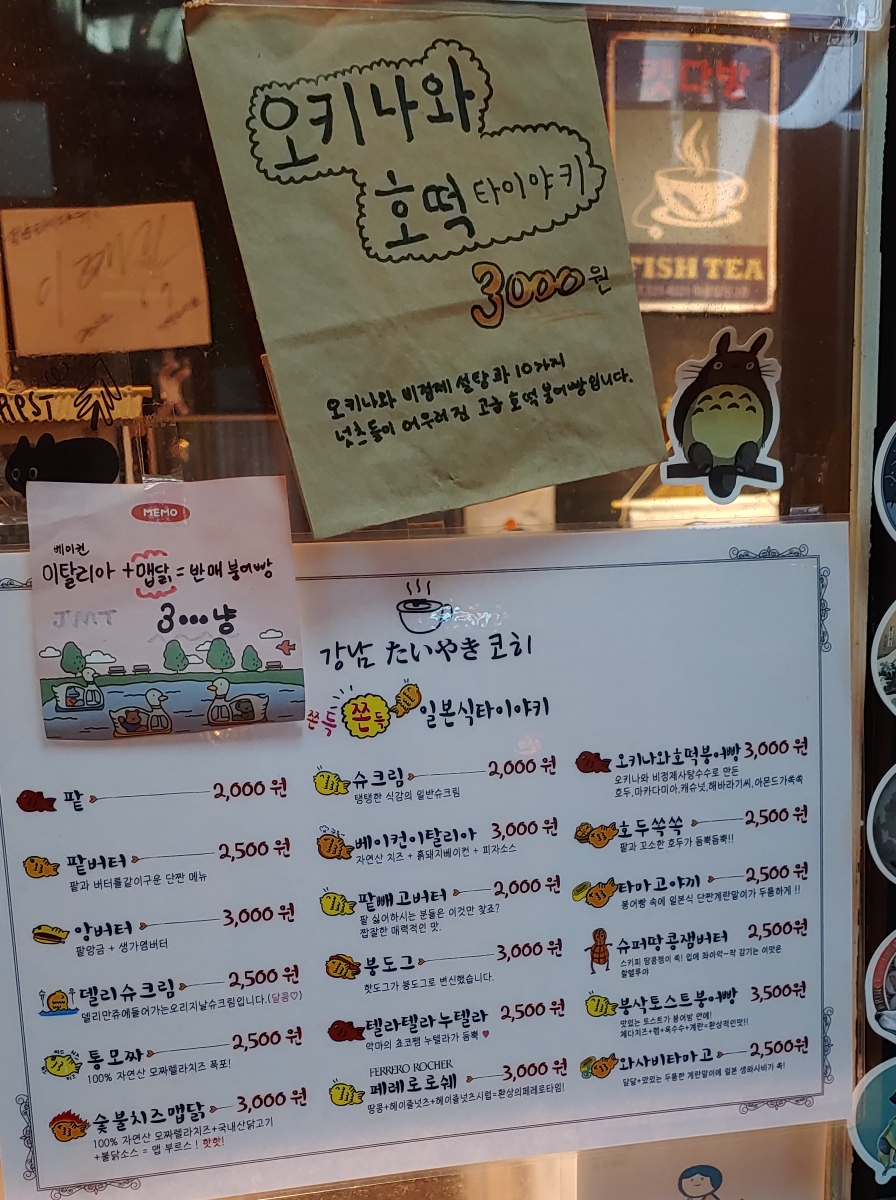 오키나와
호떡 타이야키
3000원
오키나와 비정제 설탕과 10가지
넛츠들이 어우러진 고급 호떡 붕어빵입니다.
캣다방
FISH TEA
MEMO
베이컨
이탈리아 + 맵닭 = 반매 붕어빵
JMT
3000냥
강남 たいやき 코히
쫀득 쫀득 일본식타이야키
팥 2,000 원
팥버터 2,500 원
팥과 버터를같이구운 단짠 메뉴
앙버터 3,000 원
팥앙금 + 생가염버터
델리슈크림 2,500 원
델리만쥬에들어가는오리지날슈크림입니다.(달콤♡)
통모짜 2,500 원
100% 자연산 모짜렐라치즈 폭포!
숯불치즈맵닭 3,000 원
100% 자연산 모짜렐라치즈+국내산닭고기
+불닭소스 = 맵 부르스 ! 핫핫!
슈크림 2,000 원
탱탱한 식감의 일반슈크림
베이컨이탈리아 3,000 원
자연산 치즈 + 흙돼지베이컨 + 피자소스
팥빼고버터 2,000 원
팥 싫어하시는 분들은 이것만 찾죠?
짭잘한 매력적인 맛.
붕도그 3,000 원
핫도그가 붕도그로 변신했습니다.
텔라텔라누텔라 2,500 원
악마의 쵸코쨈 누텔라가 듬뿍 ♥
FERRERO ROCHER
페레로로쉐 3,000 원
땅콩+헤이즐넛츠+헤이즐넛츠시럽=환상의페레로타임!
오키나와호떡붕어빵 3,000 원
오키나와 비정제사탕수수로 만든
호두,마카다미아,캐슈넛,해바라기씨,아몬드가쏙쏙
호두쏙쏙 2,500 원
팥과 꼬소한 호두가 듬뿍듬뿍!!
타마고야끼 2,500 원
붕어빵 속에 일본식 단짠계란말이가 두툼하게 !!
슈퍼땅콩잼버터 2,500원
스키피 땅콩쨈이 쏙! 입에 좌아악~착 감기는 이맛은
할렐루야
붕삭토스트붕어빵 3,500 원
맛있는 토스트가 붕어빵 안에!
체다치즈+햄+옥수수+계란=환상적인맛!!
와사비타마고 2,500 원
달달+맛있는 두툼한 계란말이에 일본 생와사비가 쏙!